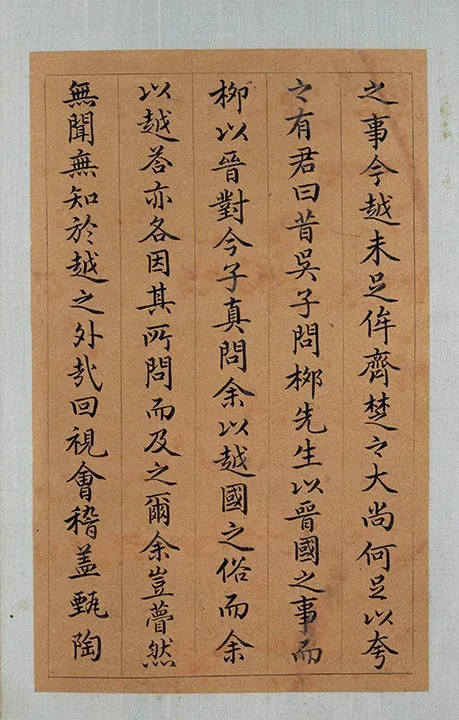 之事今越未足侔齊楚之大尚何足以夸
之有君曰昔吳子問柳先生以晉國之事而
柳以晉對今子真問余以越國之俗而余
以越答亦各因其所問而及之爾余豈瞢然
無聞無知於越之外哉回視會稽盖甄陶